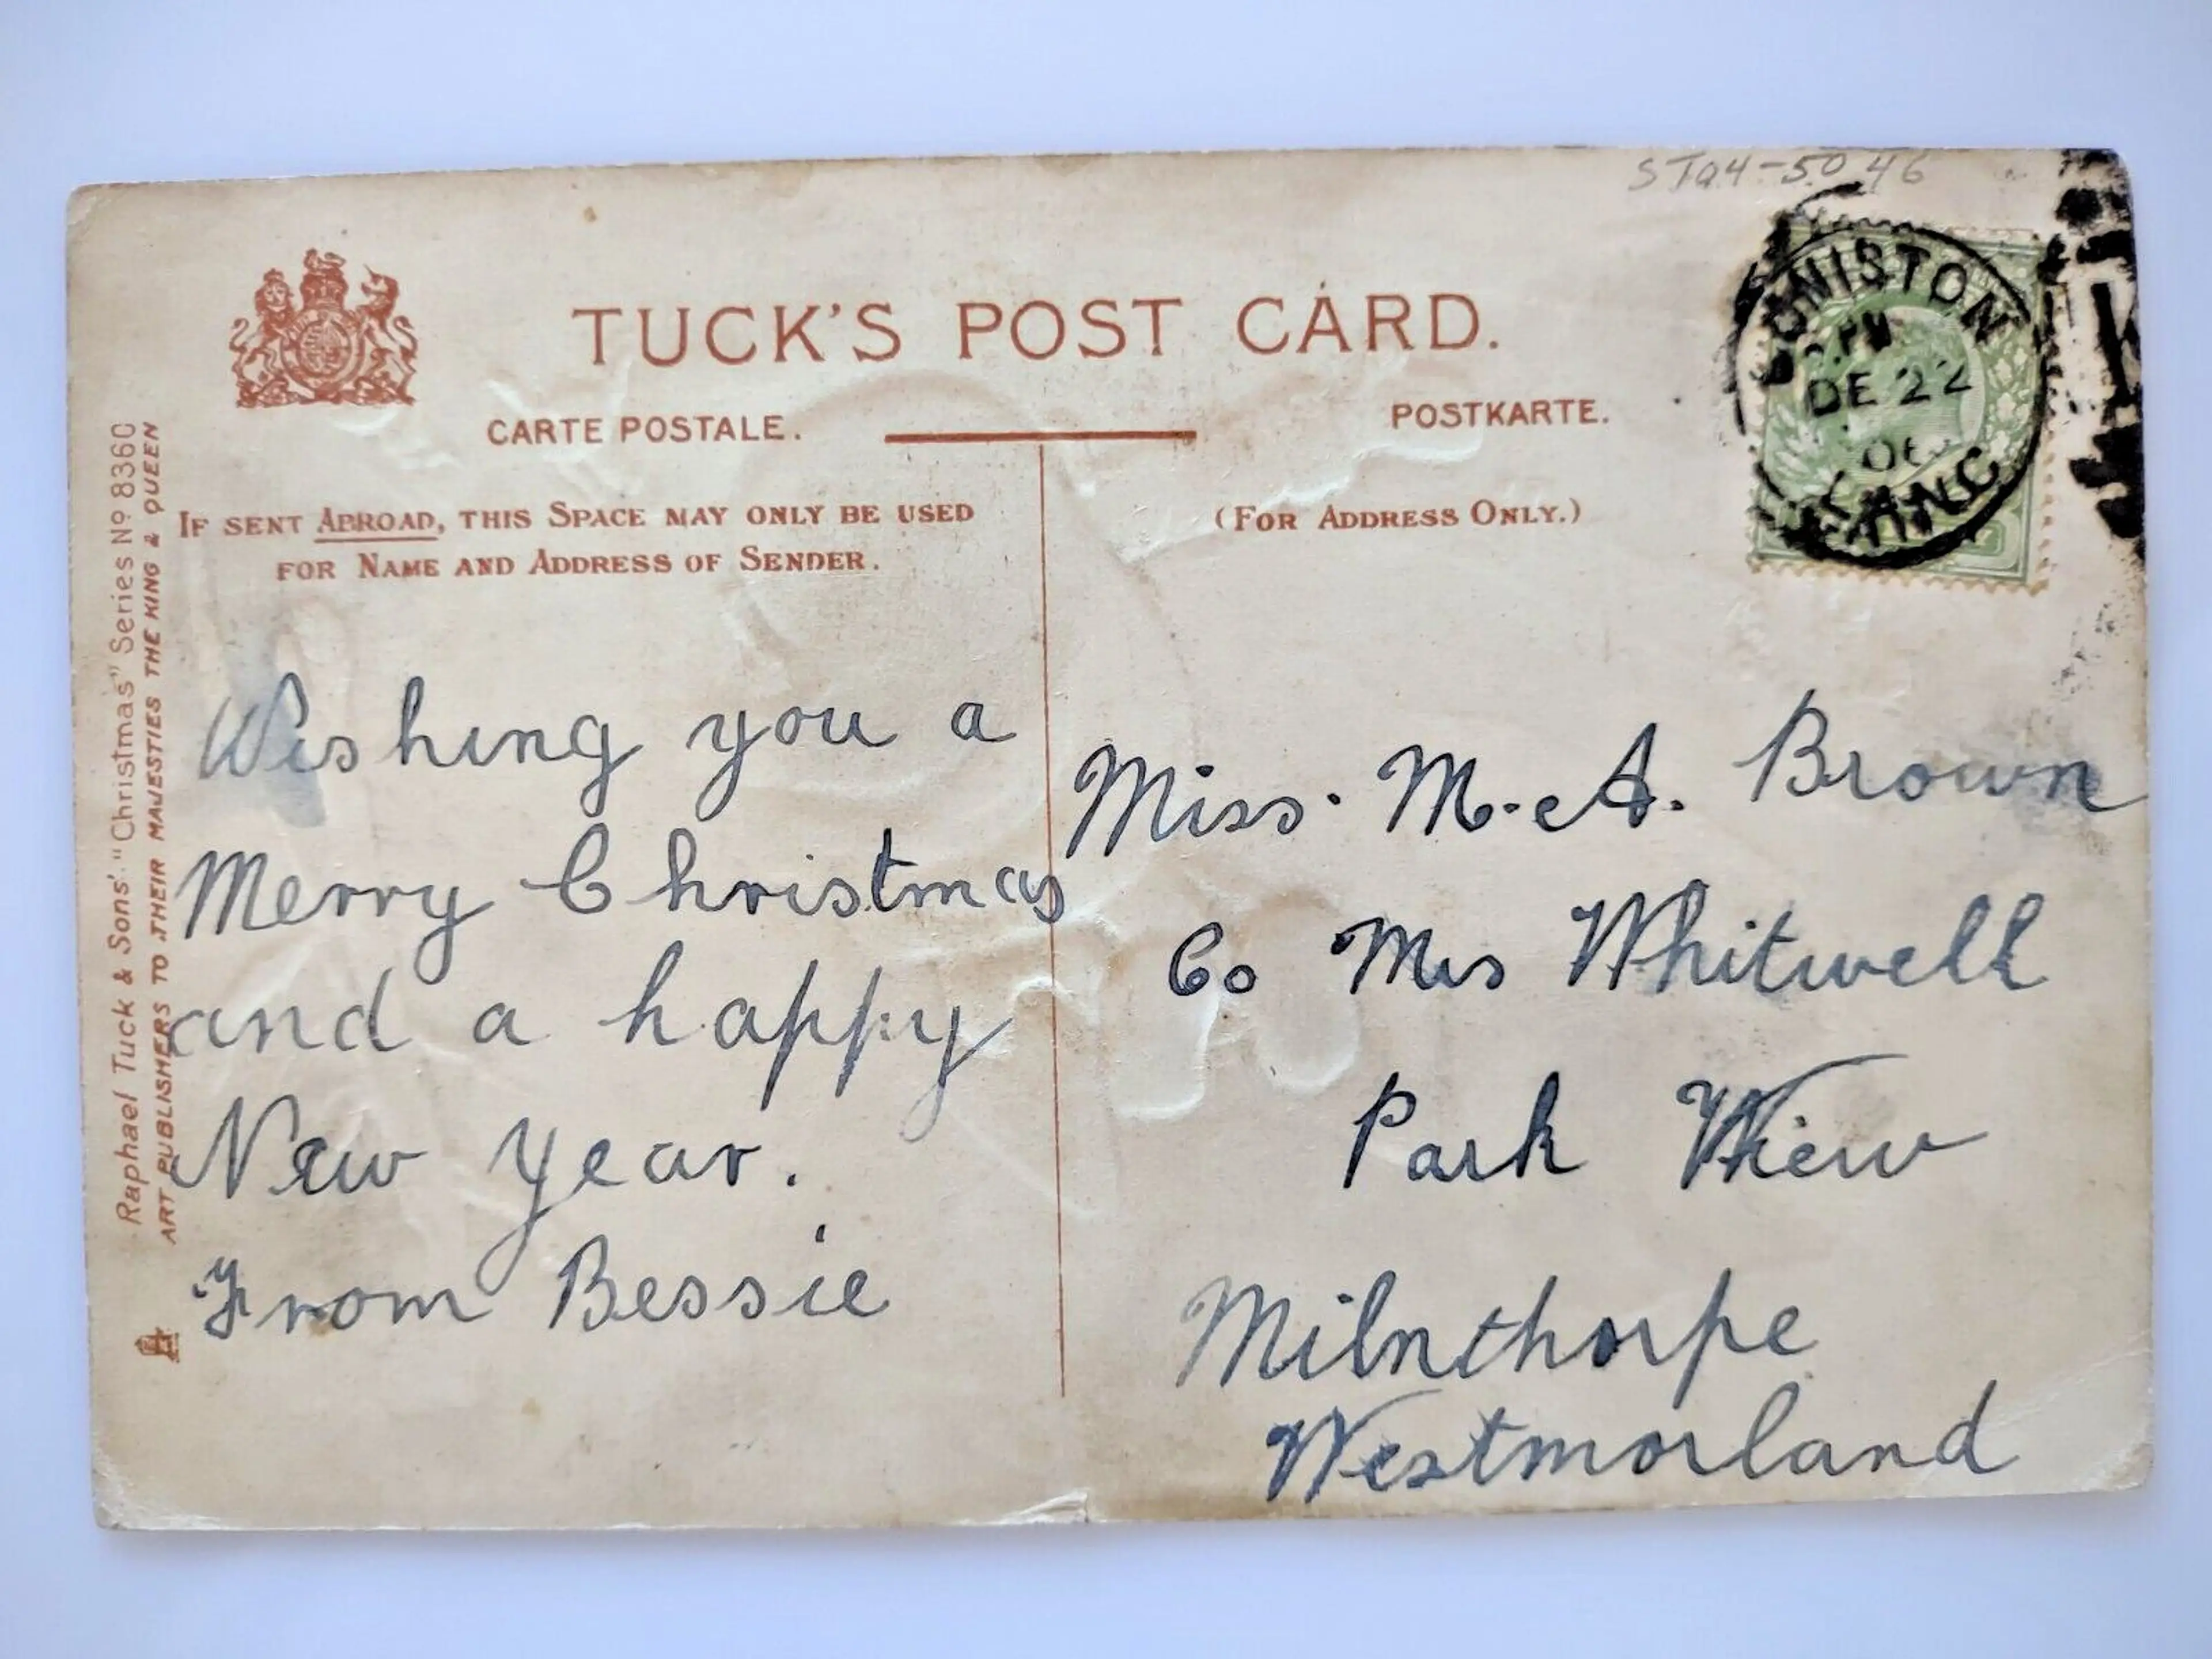 STQ4-50 46
TUCK'S POST CARD.
CARTE POSTALE.
POSTKARTE.
IF SENT ABROAD, THIS SPACE MAY ONLY BE USED
FOR NAME AND ADDRESS OF SENDER.
(FOR ADDRESS ONLY.)
CONISTON
PM
DE 22
06
LANC
Raphael Tuck & Sons' "Christmas" Series No 8360
ART PUBLISHERS TO THEIR MAJESTIES THE KING & QUEEN
Wishing you a
Merry Christmas
and a happy
New year.
From Bessie
Miss. M. A. Brown
Co Mrs Whitwell
Park View
Milnthorpe
Westmorland